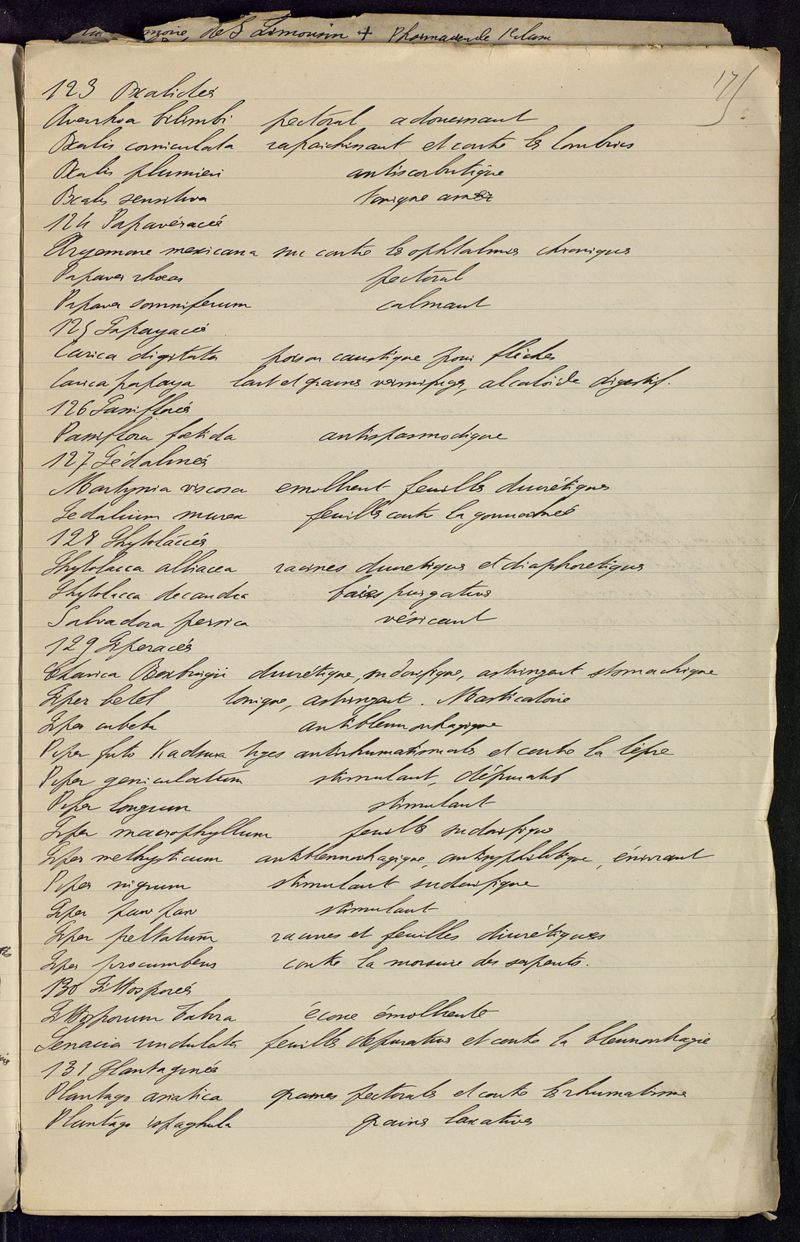 de S Limousin + Pharmacie de
175
123 Oxalidées
Averrhoa bilimbi pectoral adoucissant
Oxalis corniculata rafraichissant et contre les lombrics
Oxalis plumieri antiscorbutique
Oxalis sensitiva tonique amer
124 Papavéracées
Argemone mexicana suc contre les ophtalmies chroniques
Papaver rhoeas pectoral
Papaver somniferum calmant
125 Papayacées
Carica digitata poison caustique pour flèches
Carica papaya lait et graines vermifuges, alcaloïde digestif.
126 Passiflorées
Passiflora foetida antispasmodique
127 Pédalinées
Martynia viscosa emollient feuilles diurétiques
Pedalium murex feuilles contre la gonorrhée
128 Phytolaccées
Phytolacca alliacea racines diuretiques et diaphoretiques
Phytolacca decandra baies purgatives
Salvadora persica vésicant
129 Piperacées
Chavica Roxburgii diurétique, sudorifique, astringent stomachique
Piper betel tonique, astringent. Masticatoire
Piper cubeba antiblennorrhagique
Piper futo Kadsura tiges antirhumatismales et contre la lèpre
Piper geniculatum stimulant, dépuratif
Piper longum stimulant
Piper macrophyllum feuilles sudorifiques
Piper methysticum antiblennorrhagique, antisyphilitique, énivrant
Piper nigrum stimulant sudorifique
Piper stimulant
Piper peltatum racines et feuilles diurétiques
Piper procumbens contre la morsure des serpents.
130 Pittosporées
Pittosporum Tobira écorce émolliente
Senacia undulata feuilles depuratives et contre la blennorrhagie
131 Plantaginées
Plantago asiatica graines pectorales et contre les rhumatismes
Plantago ispaghula graines laxatives